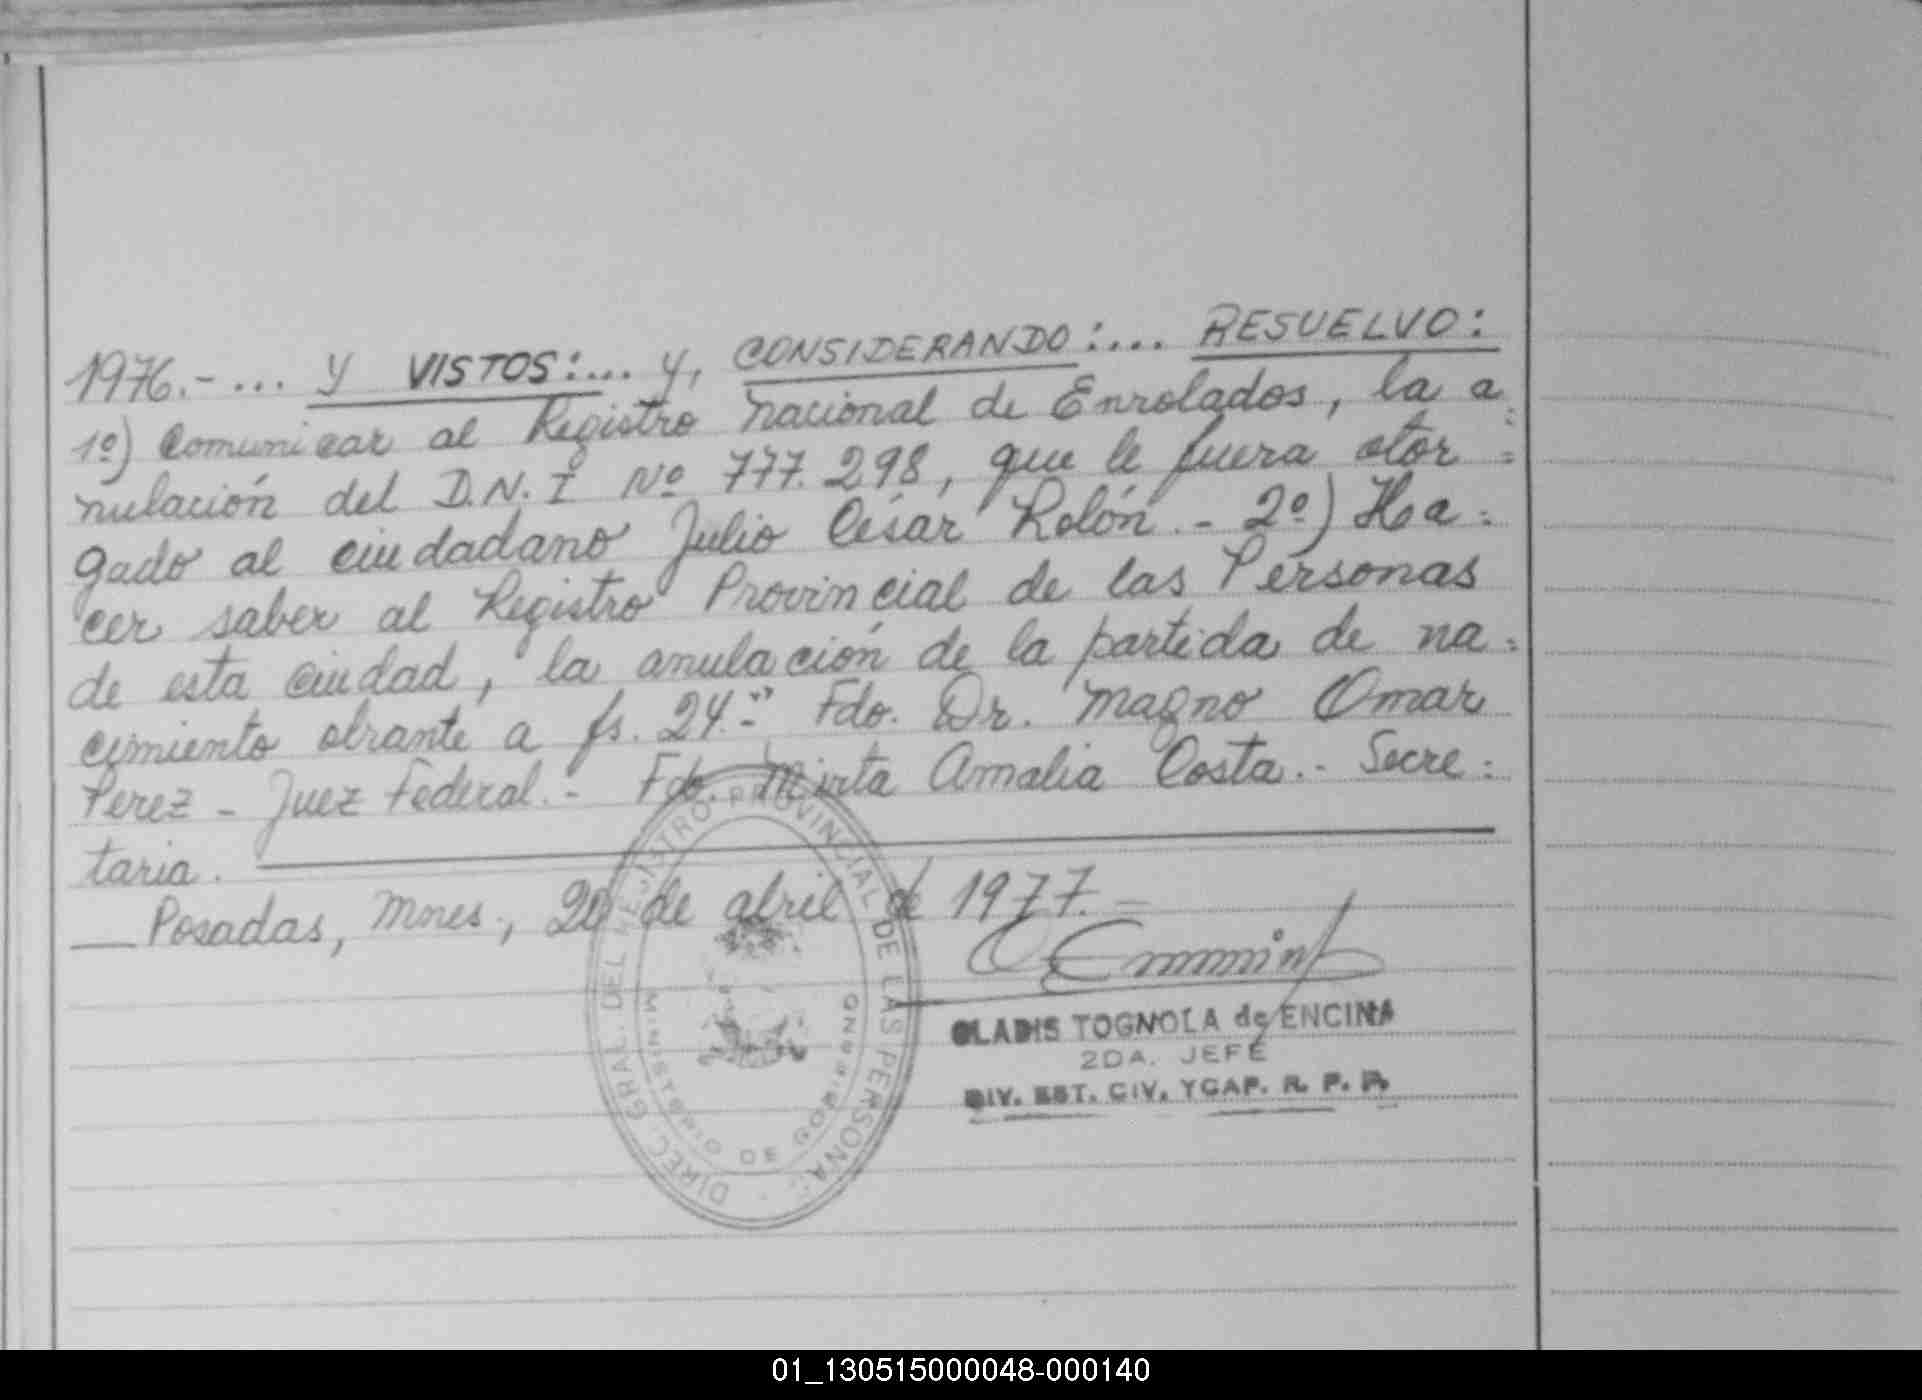 1976.- ... Y VISTOS:... y, CONSIDERANDO:... RESUELVO:
1º) Comunicar al Registro Nacional de Enrolados, la a=
nulación del D.N.I Nº 777.298, que le fuera otor=
gado al ciudadano Julio César Rolón.- 2º) Ha=
cer saber al Registro Provincial de las Personas
de esta ciudad, la anulación de la partida de na=
cimiento obrante a fs. 24.-" Fdo. Dr. Magno Omar
Perez - Juez Federal.- Fdo. Mirta Amalia Costa.- Secre=
taria.
Posadas, Mnes., 20 de abril de 1977.-
GLADIS TOGNOLA de ENCINA
2DA. JEFE
DIV. EST. CIV. YCAP. R. P. P.
DIREC. GRAL. DEL REGISTRO PROVINCIAL DE LAS PERSONAS
MINISTERIO DE GOBIERNO
01_130515000048-000140